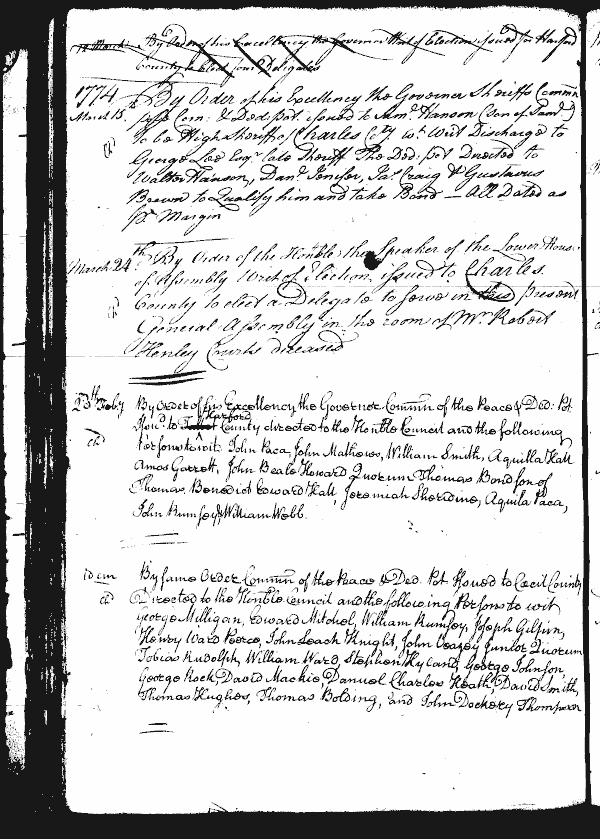 14 March By Order of his Excellency the Governor Writ of Election issued for Harford
County to Elect four Delegates
1774 By Order of his Excellency the Governor Sheriffs Commn
March 15. issd Com: & Ded: pot. issued to Saml. Hanson (son of Saml.)
to be High Sheriff of Charles Cty wt. Writ Discharge to
George Lee Esqr. late Sheriff The Ded: pot Directed to
Walter Hanson, Danl. Jenifer, Jas. Craig & Gustavus
Brown to Qualify him and take Bond — All Dated as
pr. Margin
March 24th By Order of the Honble. the Speaker of the Lower House
of Assembly Writ of Election issued to Charles
County to elect a Delegate to serve in this present
General Assembly in the room of Mr. Robert
Henley Courts deceased
23th Feby By Order of his Excellency the Governor Commn of the Peace & Ded: Pot
Harford
Issu'd to County directed to the Honble Council and the following
Persons to wit John Paca, John Mathews, William Smith, Aquilla Hall
Amos Garrett, John Beale Howard Quorum Thomas Bond son of
Thomas, Benedict Edward Hall, Jeremiah Sheredine, Aquila Paca,
John Rumsey & William Webb.
idem By same Order Commn of the Peace & Ded. Pot, Issued to Cecil County
Directed to the Honble Council and the following Persons to wit
George Milligan, Edward Mitchel, William Rumsey, Joseph Gilpin,
Henry Ward Pearce, John Leach Knight, John Veazey Junior Quorum
Tobias Rudolph, William Ward, Stephen Hyland, George Johnson,
George Rock David Mackie, Danuel Charles Heath, David Smith,
Thomas Hughes, Thomas Bolding, and John Dockery Thompson